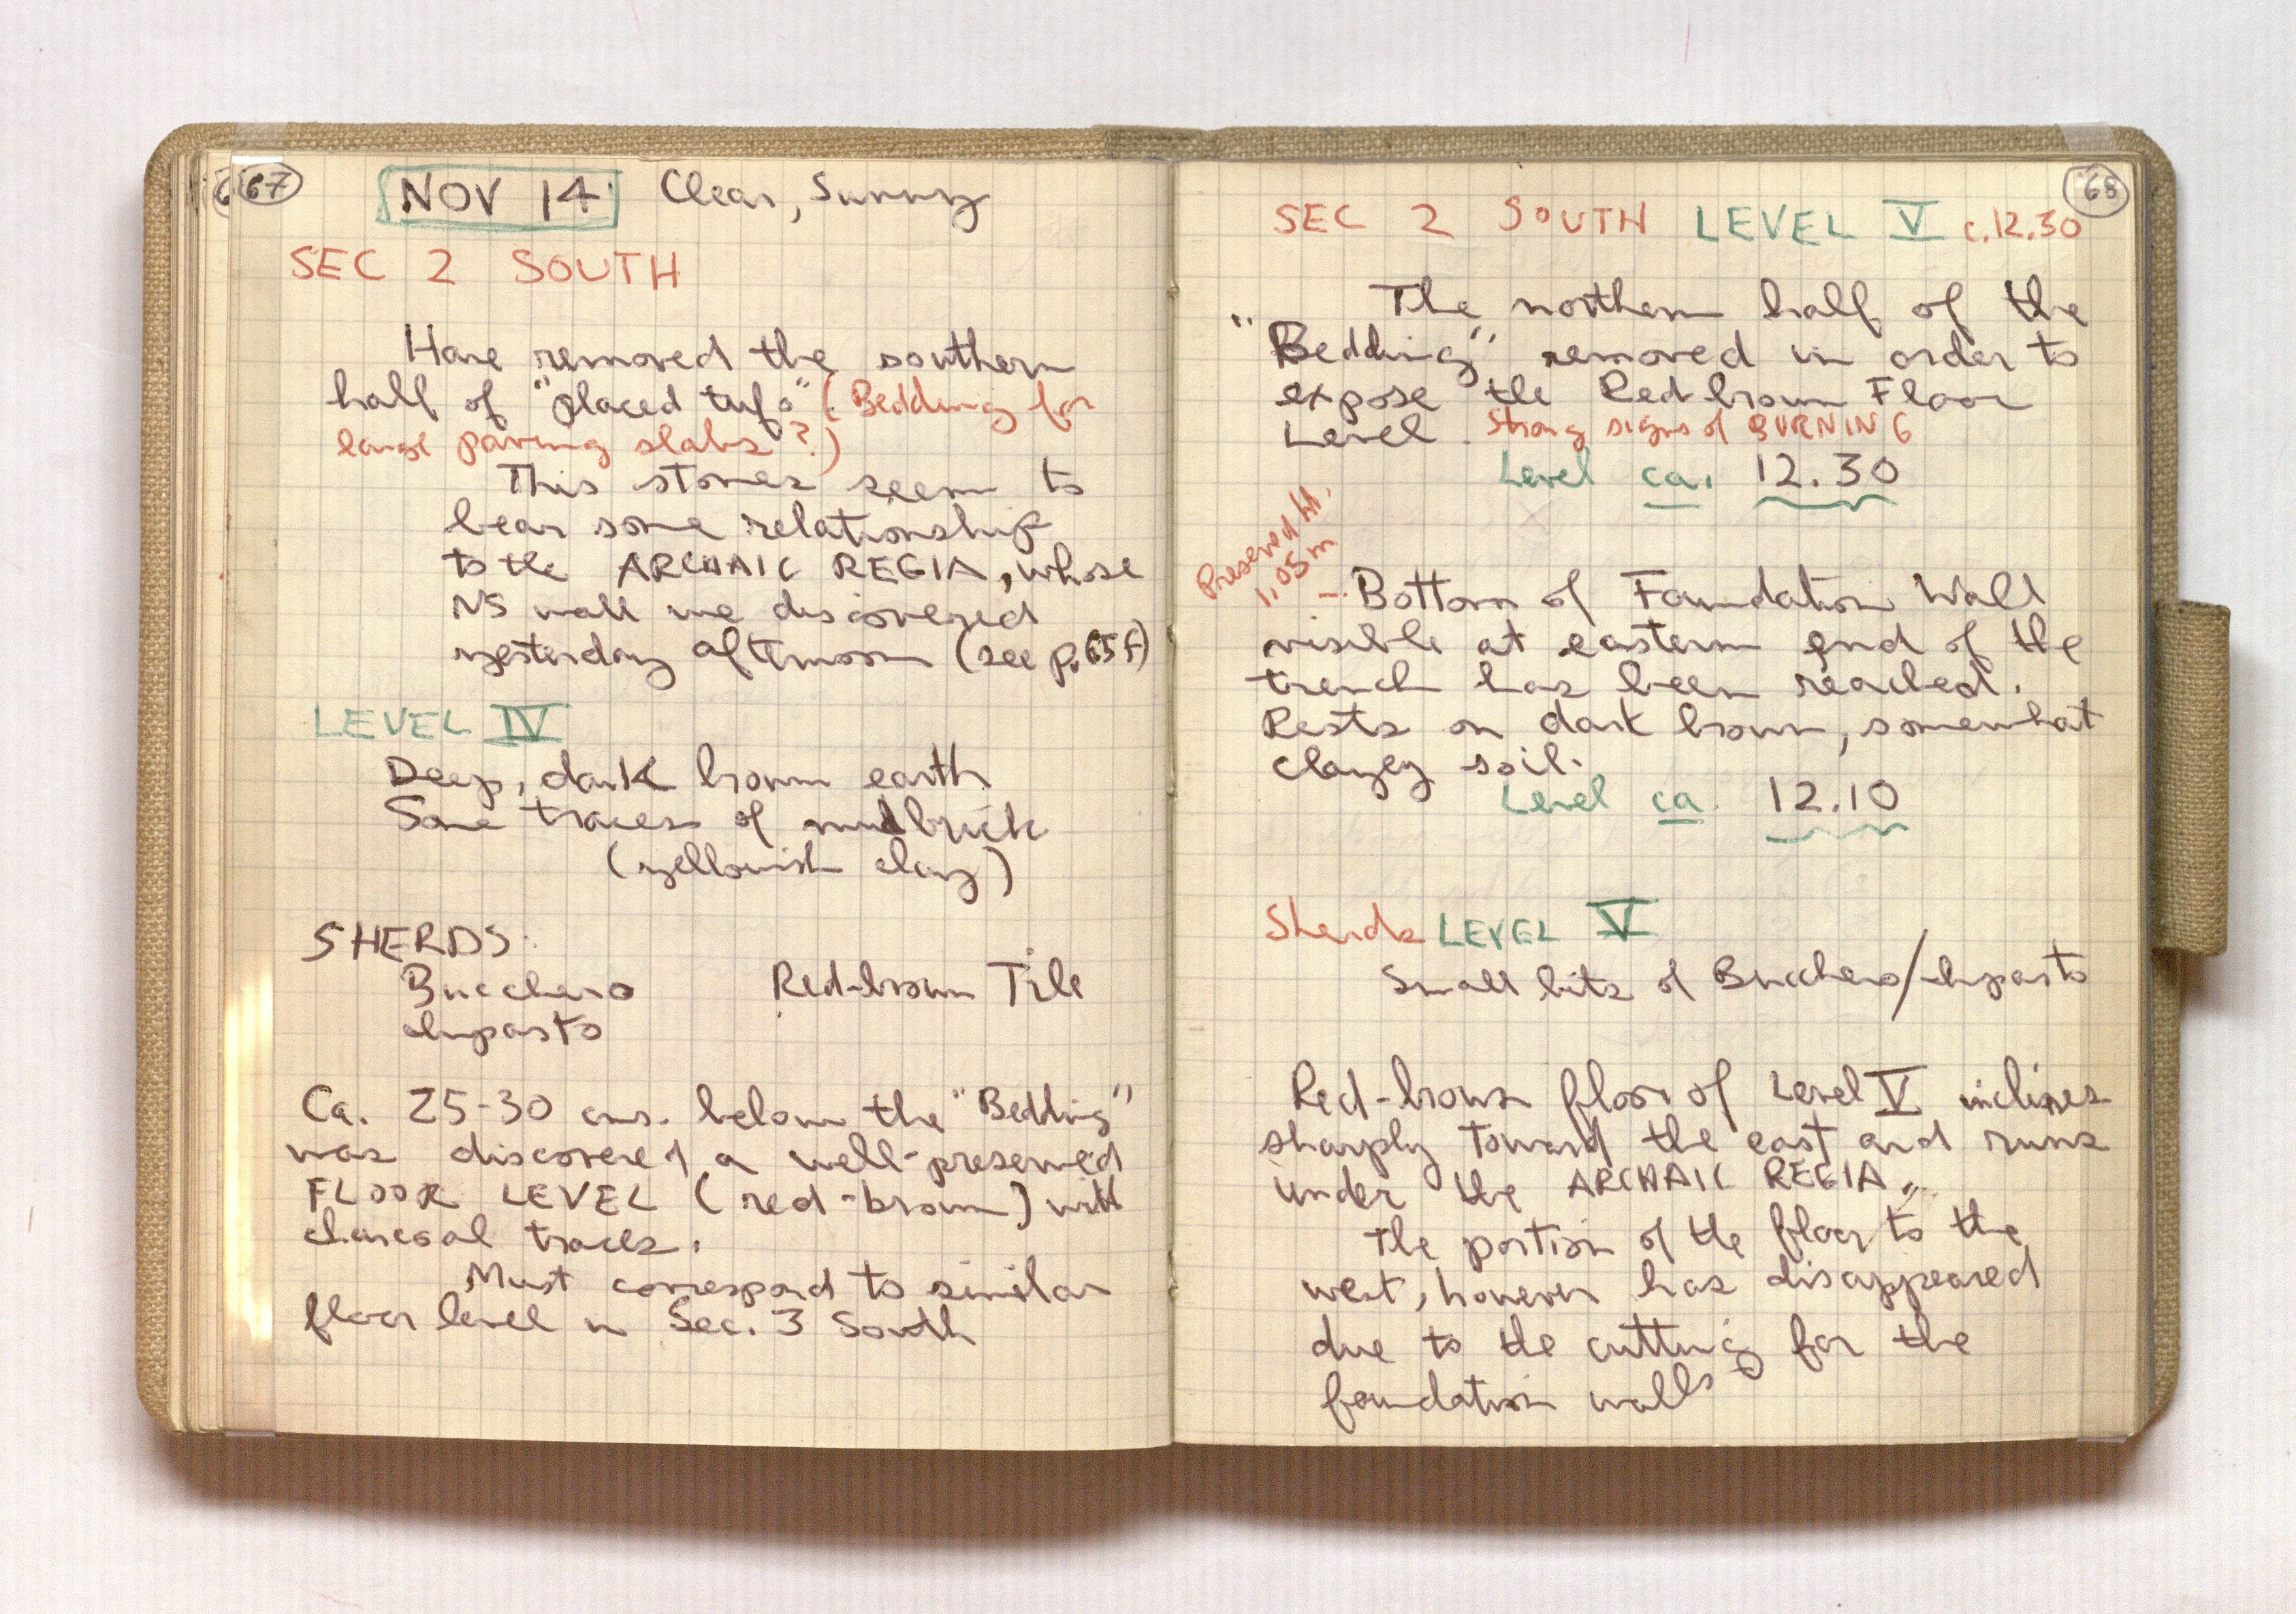 67
NOV 14 Clear, Sunny
SEC 2 SOUTH
Have removed the southern
half of "placed tufo" (Bedding for
large paving slabs?)
This stones seem to
bear some relationship
to the ARCHAIC REGIA, whose
NS wall we discovered
yesterday afternoon (see p. 65 f)
LEVEL IV
Deep, dark brown earth
Some traces of mudbrick
(yellowish clay)
SHERDS:
Bucchero Red-brown Tile
Impasto
Ca. 25-30 cms. below the "Bedding"
was discovered a well-preserved
FLOOR LEVEL (red-brown) with
charcoal traces.
Must correspond to similar
floor level in Sec. 3 South
68
SEC 2 SOUTH LEVEL V c. 12.30
The northern half of the
"Bedding" removed in order to
expose the Red brown Floor
Level. Strong signs of BURNING
Level ca. 12.30
Preserved ht.
1.05 m
- Bottom of Foundation Wall
visible at eastern end of the
trench has been reached.
Rests on dark brown, somewhat
clayey soil.
Level ca. 12.10
Sherds LEVEL V
Small bits of Bucchero/Impasto
Red-brown floor of Level V inclines
sharply toward the east and runs
under the ARCHAIC REGIA.
The portion of the floor to the
west, however has disappeared
due to the cutting for the
foundation walls